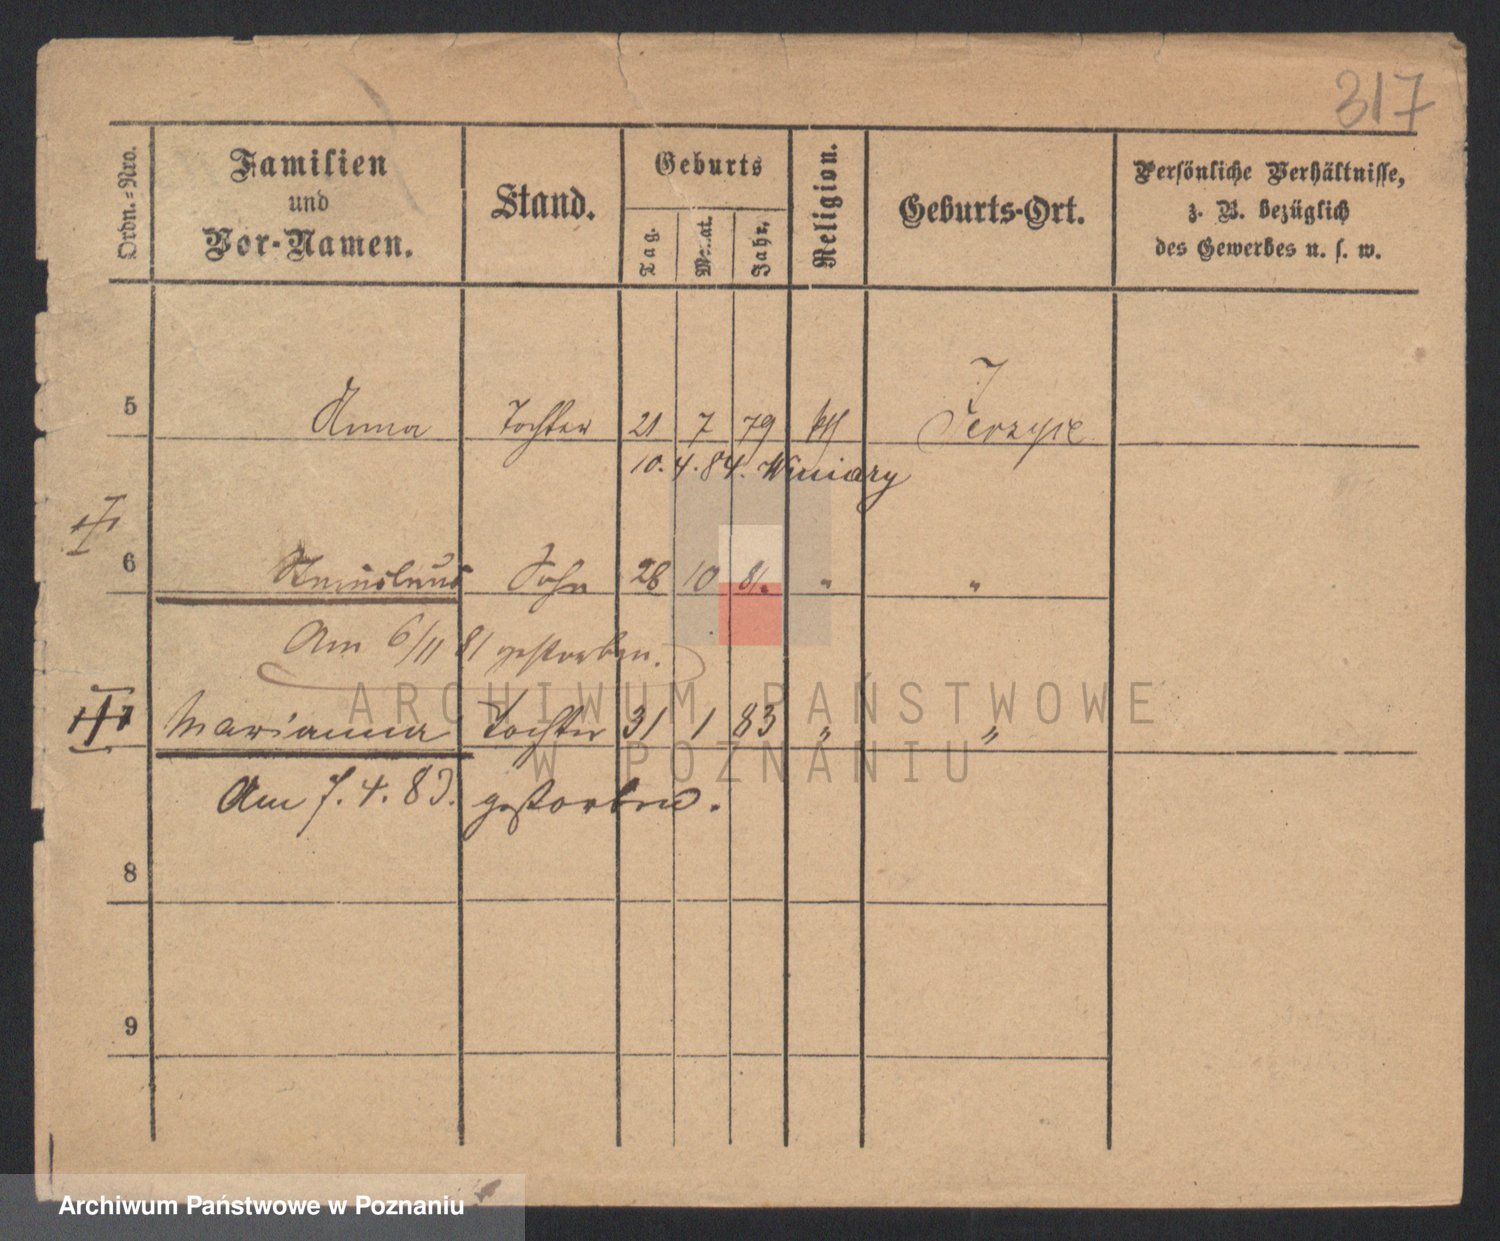 317
Ordn.=Nro.
Familien
und
Vor-Namen.
Stand.
Geburts
Tag.
Monat.
Jahr.
Religion.
Geburts-Ort.
Persönliche Verhältnisse,
z. B. bezüglich
des Gewerbes u. s. w.
5 Anna Tochter 21 7 79 kth Jerzyce
10. 4. 84. Winiary
6 Stanislaus Sohn 28 10 81. " "
Am 6/11 81 gestorben.
Marianna Tochter 31 1 83 " "
Am 7. 4. 83. gestorben.
8
9
ARCHIWUM PAŃSTWOWE
W POZNANIU
Archiwum Państwowe w Poznaniu